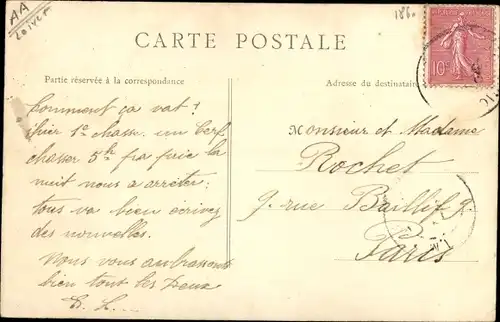 AA
1860
CARTE POSTALE
Partie réservée à la correspondance
Adresse du destinataire
10c
Comment ça vat!
hier 1e chasse. un cerf
chasser 5h la
nuit nous a arrêter;
tous va bien écrivez
des nouvelles.
Nous vous embrassons
bien tout les deux
E. L.
Monsieur et Madame
Rochet
9. rue Baillif 9.
Paris